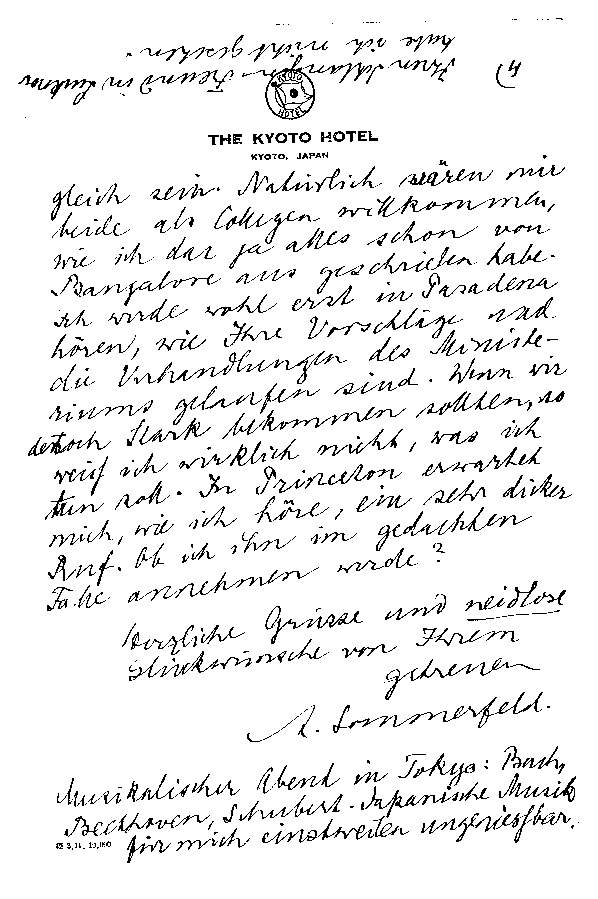 4)
Ihren Schlangen-Freund in Lucknow
habe ich nicht gesehen.
KYOTO
HOTEL
THE KYOTO HOTEL
KYOTO, JAPAN
gleich sein. Natürlich wären mir
beide als Collegen willkommen,
wie ich das ja alles schon von
Bangalore aus geschrieben habe.
Ich werde wohl erst in Pasadena
hören, wie Ihre Vorschläge und
die Verhandlungen des Ministe-
riums gelaufen sind. Wenn wir
dennoch Stark bekommen sollten, so
weiß ich wirklich nicht, was ich
tun soll. In Princeton erwartet
mich, wie ich höre, ein sehr dicker
Ruf. Ob ich ihn im gedachten
Falle annehmen werde?
Herzliche Grüsse und neidlose
Glückwünsche von Ihrem
getreuen
A. Sommerfeld.
Musikalischer Abend in Tokyo: Bach,
Beethoven, Schubert. Japanische Musik
für mich einstweilen ungeniessbar.